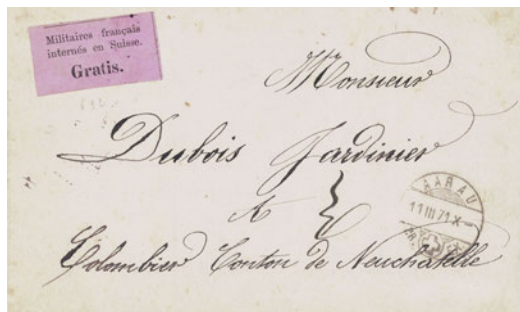 Militaires français
internés en Suisse.
Gratis.
Monsieur
Dubois Jardinier
A
Colombier Conton de Neuchatelle
AARAU
11 III 71 X